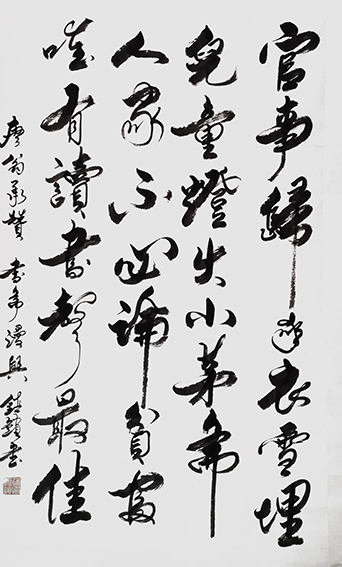 官事歸來衣雪埋
兒童燈火小茅齋
人家不必論貧富
唯有讀書聲最佳
翁承贊 書齋漫興 書